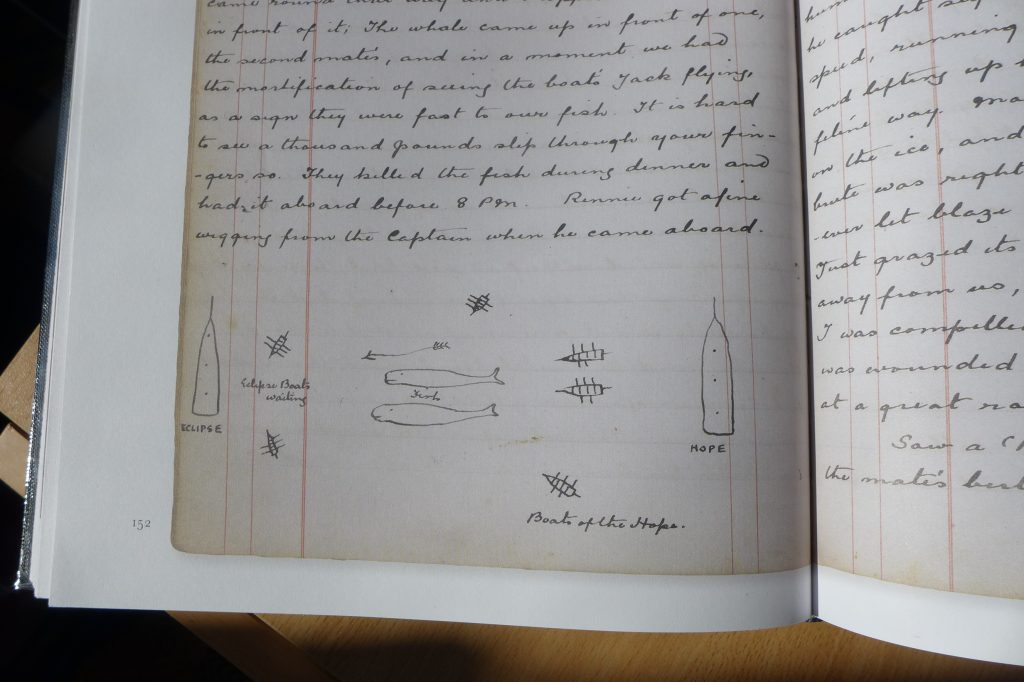 came round
in front of it; The whale came up in front of one,
the second mate's, and in a moment we had
the mortification of seeing the boat's Jack flying,
as a sign they were fast to our fish. It is hard
to see a thousand pounds slip through your fin-
-gers so. They killed the fish during dinner and
had it aboard before 8 PM. Rennie got a fine
wigging from the Captain when he came aboard.
Eclipse Boats
waiting
Fish
ECLIPSE
HOPE
Boats of the Hope.
152
he caught
speed, running
and lifting up
feline way.
on the ice, and
brute was right
-ever let blaze
Just grazed its
away from us,
I was compelle
was wounded
at a great ra
Saw a
the mate's best